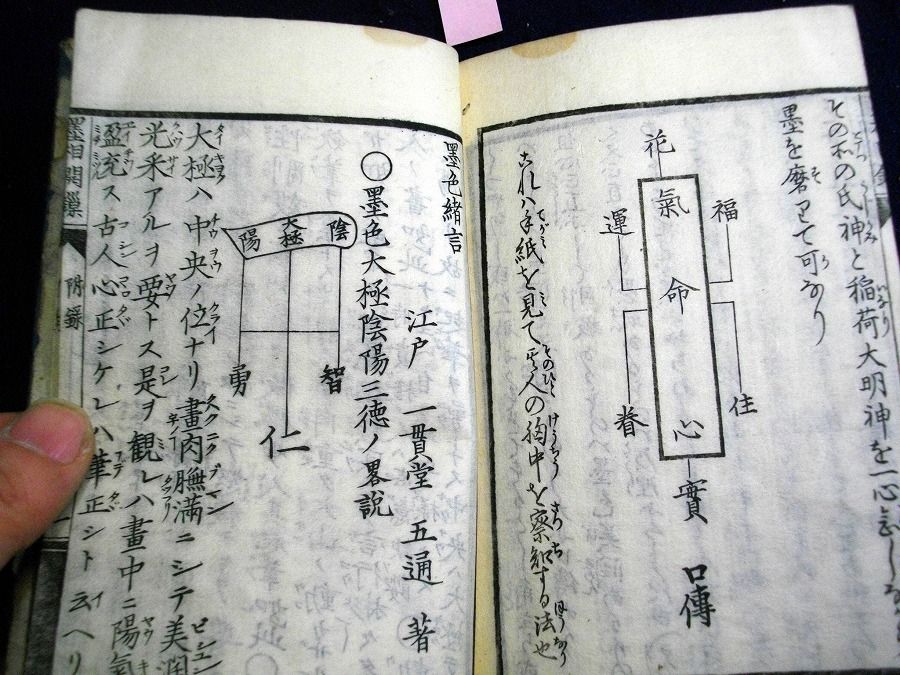 その所の氏神と稲荷大明神を一心に念じ
墨を磨りて可なり
花
氣
命
心
福
運
住
眷
實
口傳
これハ手紙を見て其人の胸中を察知する法也
墨色緒言
江戸 一貫堂 五通 著
○墨色大極陰陽三徳ノ畧説
陰
大極
陽
智
仁
勇
大極ハ中央ノ位ナリ畫肉膴満ニシテ美潤
光采アルヲ要トス是ヲ観レハ畫中ニ陽氣
盈充ス古人心正シケレハ華正シト云ヘリ
墨相関鑰
附錄